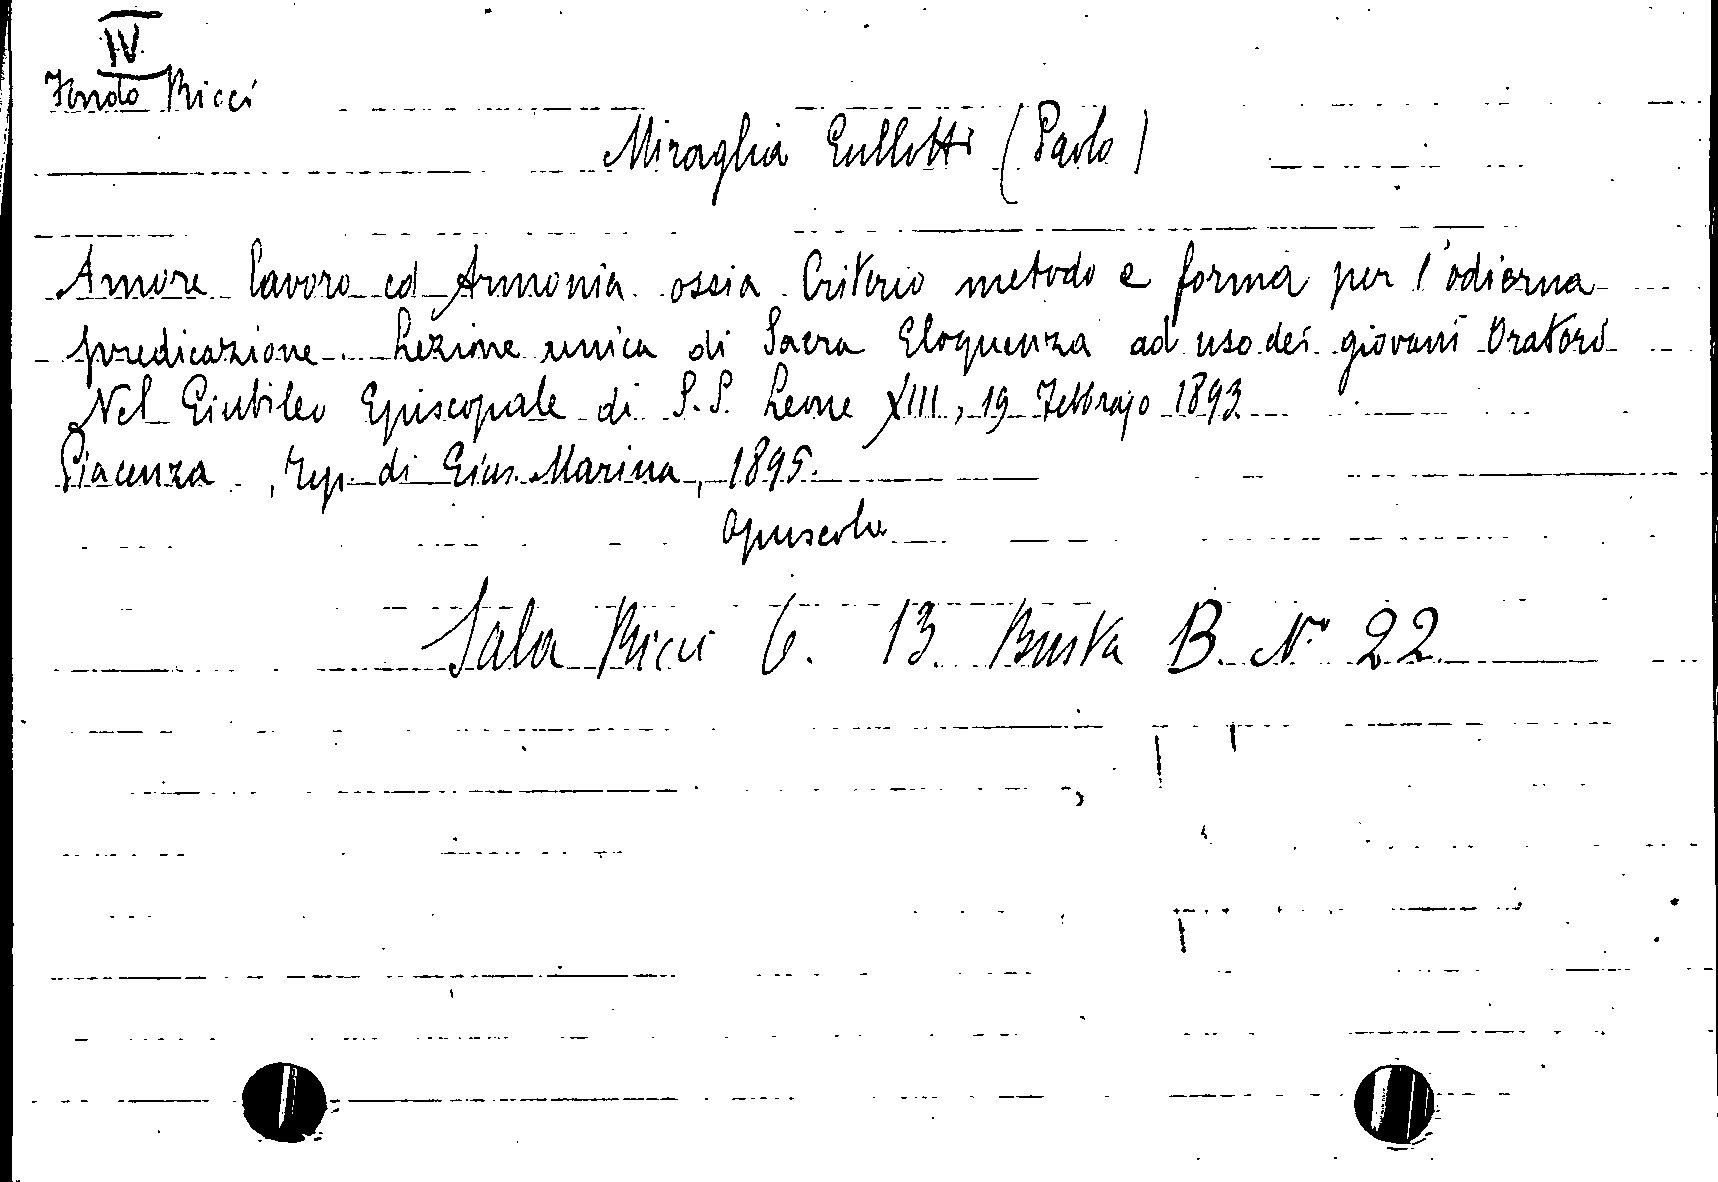 IV
Fondo Ricci
Miraglia Gullotti (Paolo)
Amore lavoro ed Armonia ossia Criterio metodo e forma per l'odierna
predicazione. Lezione unica di Sacra Eloquenza ad uso dei giovani Oratori
Nel Giubileo Episcopale di S.S. Leone XIII, 19 Febbrajo 1893
Piacenza, Tip. di Gius. Marina, 1895.
Opuscolo
Sala Ricci 6. 13 Busta B. N° 22